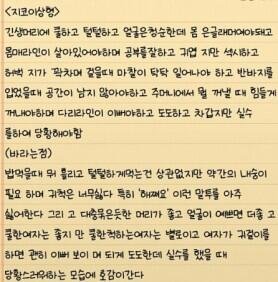 <지코이상형>
긴생머리에 쿨하고 털털하고 얼굴은청순한데 몸 은글래머여야돼고
몸매라인이 살아있어야하며 공부를잘하고 귀엽 지만 섹시하고
허벅 지가 꽉차며 걸을때 마찰이 탁탁 일어나야 하고 반바지를
입었을때 공간이 남지 않아야하고 주머니에서 뭘 꺼낼 때 힘들게
꺼내야하며 다리라인이 이뻐야하고 도도하고 차갑지만 실수
를하여 당황해야함
(바라는점)
밥먹을때 뭐 흘리고 털털하게먹는건 상관없지만 약간의 내숭이
필요 하며 귀척은 너무싫다 특히 '해쪄요' 이런 말투를 아주
싫어한다 그리 고 대충묶은듯한 머리가 좋고 얼굴이 예쁘면 더좋 고
쿨한여자는 좋지 만 쿨한척하는여자는 별로이고 여자가 귀걸이를
하면 괜히 이뻐 보이 며 되게 도도한데 실수를 했을 때
당황스러워하는 모습에 호감이간다